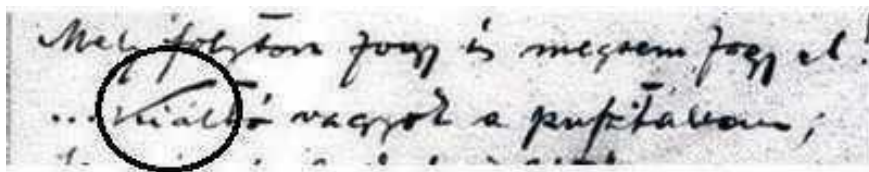 Mely folyton fogy és megsem fogy el!
...Kiáltó vagyok a pusztában;